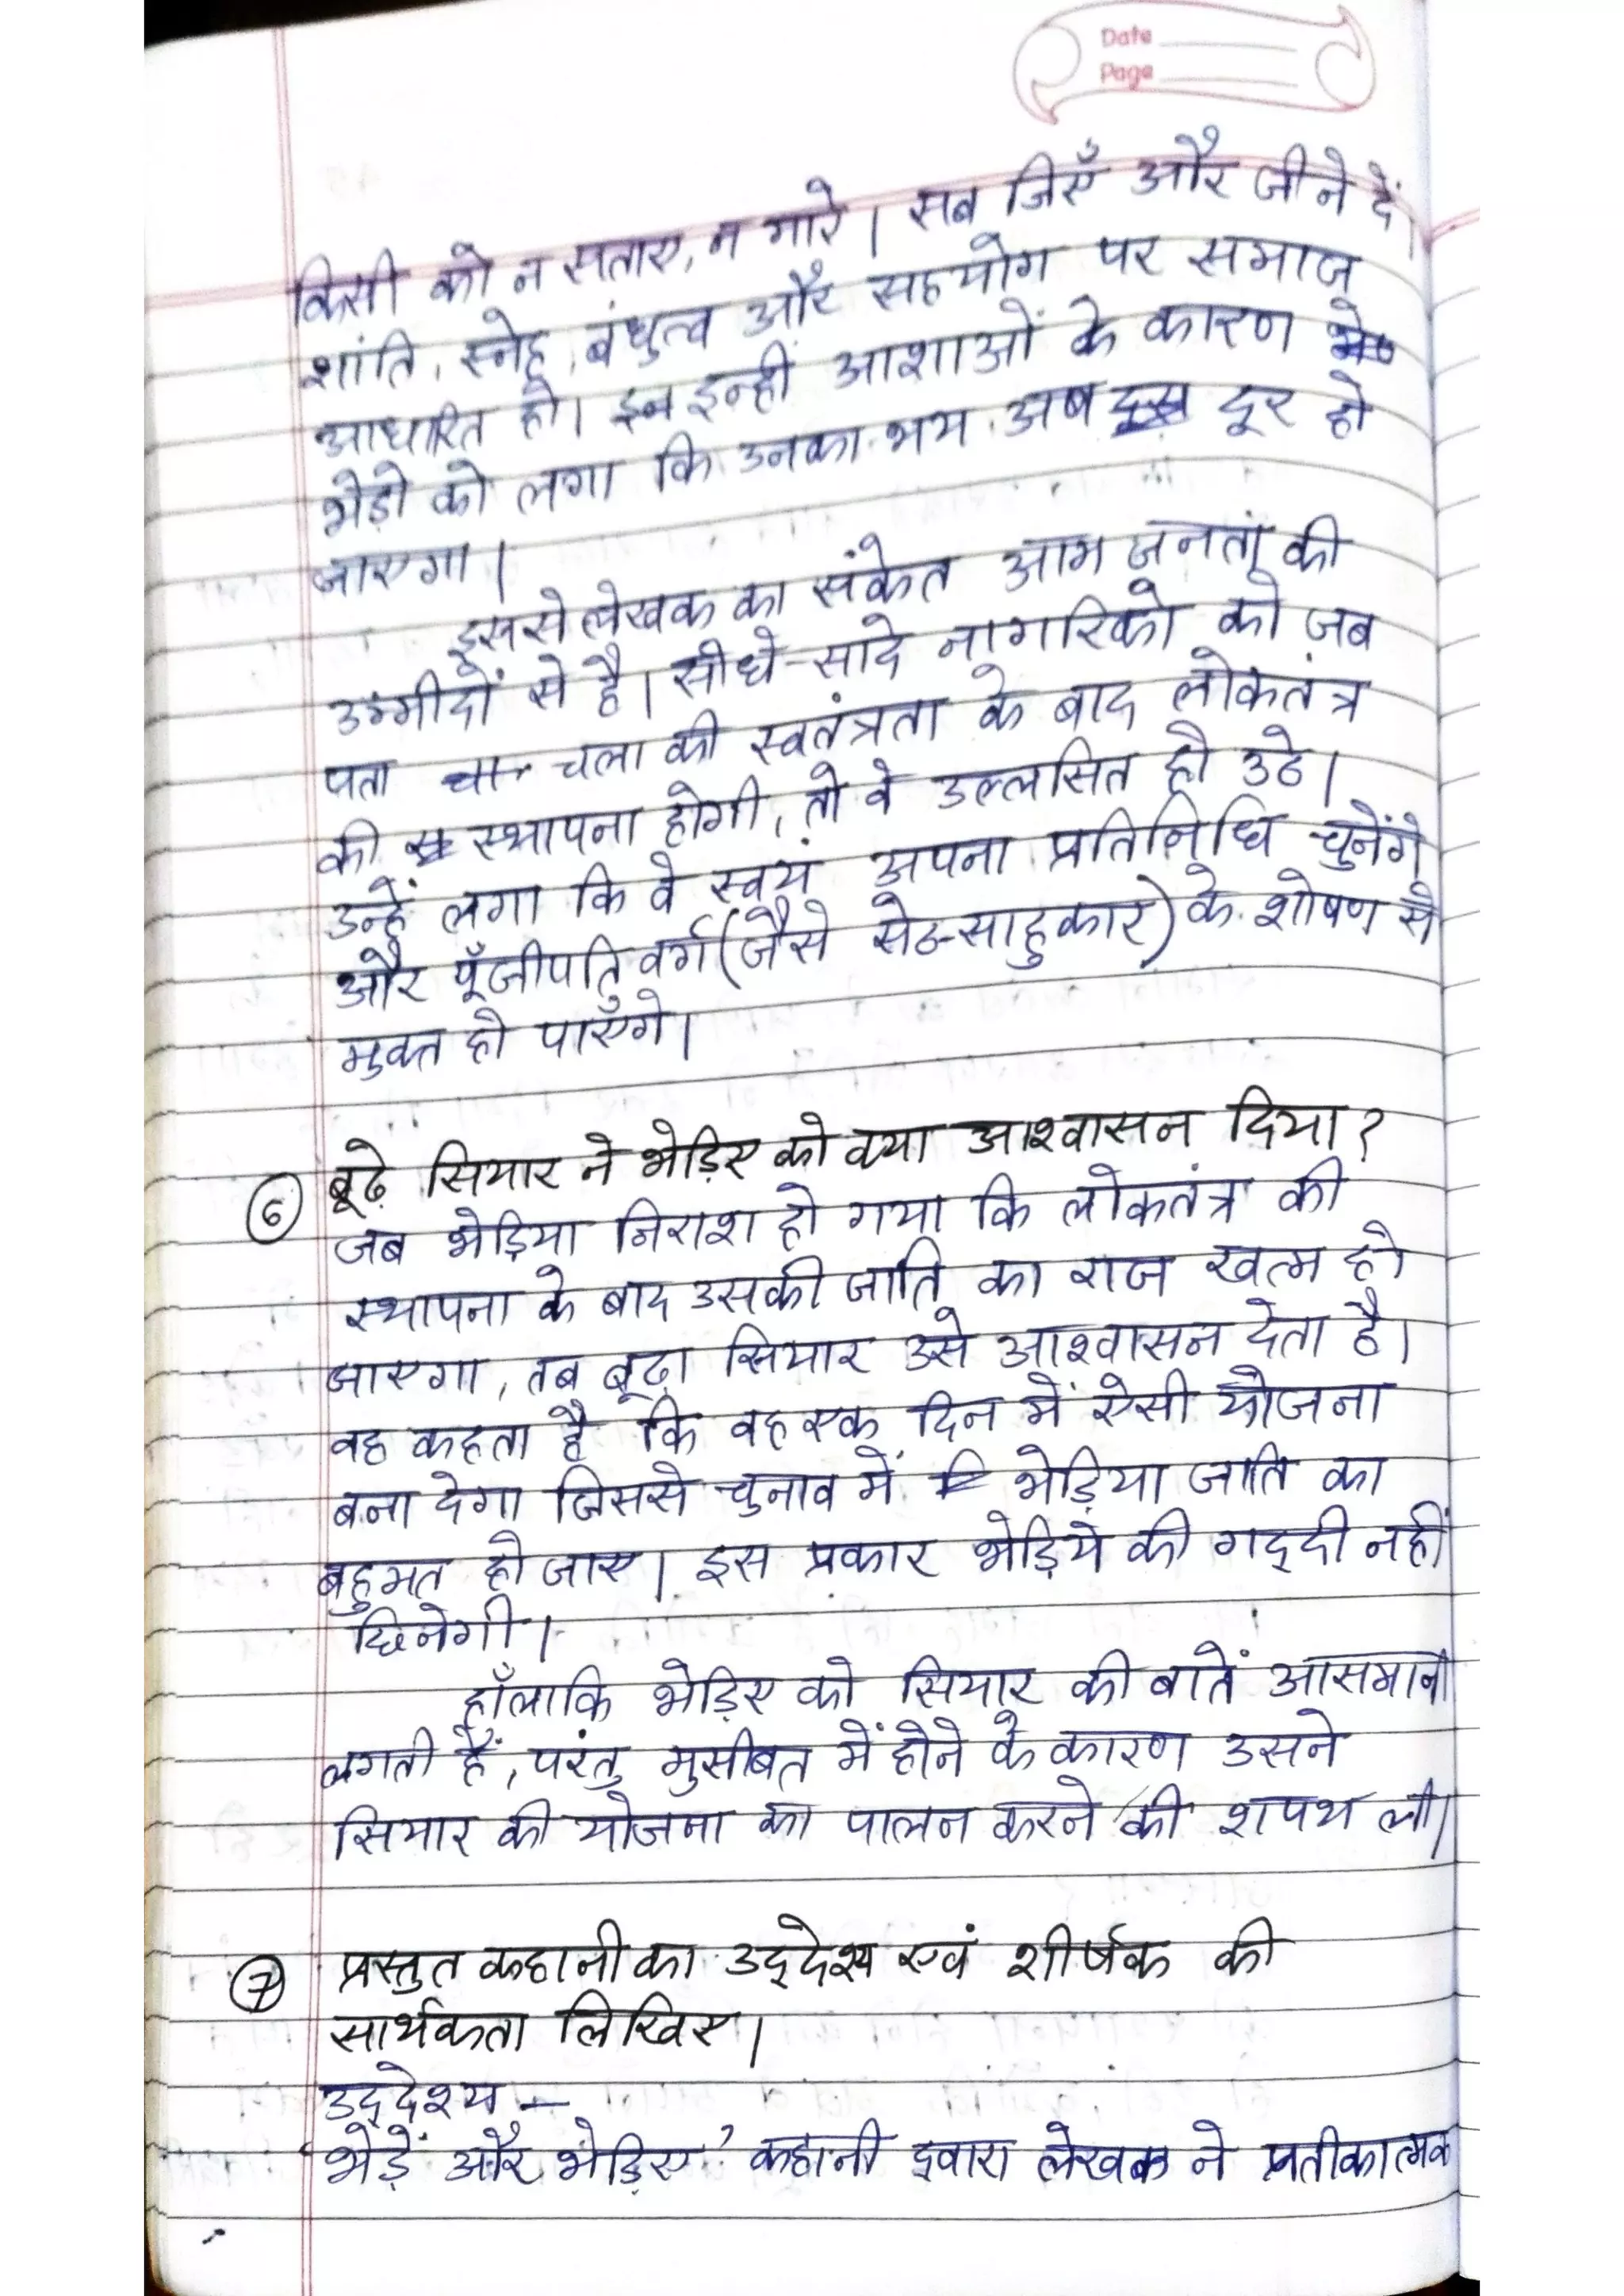 Date
Page
किसी को न सताए, न मारे। सब जिएँ और जीने दें।
शांति, स्नेह, बंधुत्व और सहयोग पर समाज
आधारित हो। इन इन्हीं आशाओं के कारण
भेड़ों को लगा कि उनका भय अब दूर हो
जाएगा।
इससे लेखक का संकेत आम जनता की
उम्मीदों से है। सीधे-सादे नागरिकों को जब
पता चला की स्वतंत्रता के बाद लोकतंत्र
की स्थापना होगी, तो वे उल्लसित हो उठे।
उन्हें लगा कि वे स्वयं अपना प्रतिनिधि चुनेंगे
और पूँजीपति वर्ग (जैसे सेठ-साहुकार) के शोषण से
मुक्त हो पाएँगे।
6 बूढ़े सियार ने भेड़िए को क्या आश्वासन दिया?
जब भेड़िया निराश हो गया कि लोकतंत्र की
स्थापना के बाद उसकी जाति का राज खत्म हो
जाएगा, तब बूढ़ा सियार उसे आश्वासन देता है।
वह कहता है कि वह एक दिन में ऐसी योजना
बना देगा जिससे चुनाव में भेड़िया जाति का
बहुमत हो जाए। इस प्रकार भेड़िये की गद्दी नहीं
छिनेगी।
हाँलाकि भेड़िए को सियार की बातें आसमानी
लगती हैं, परंतु मुसीबत में होने के कारण उसने
सियार की योजना का पालन करने की शपथ ली।
7 प्रस्तुत कहानी का उद्देश्य एवं शीर्षक की
सार्थकता लिखिए।
उद्देश्य –
भेड़ें और भेड़िए' कहानी द्वारा लेखक ने प्रतीकात्मक